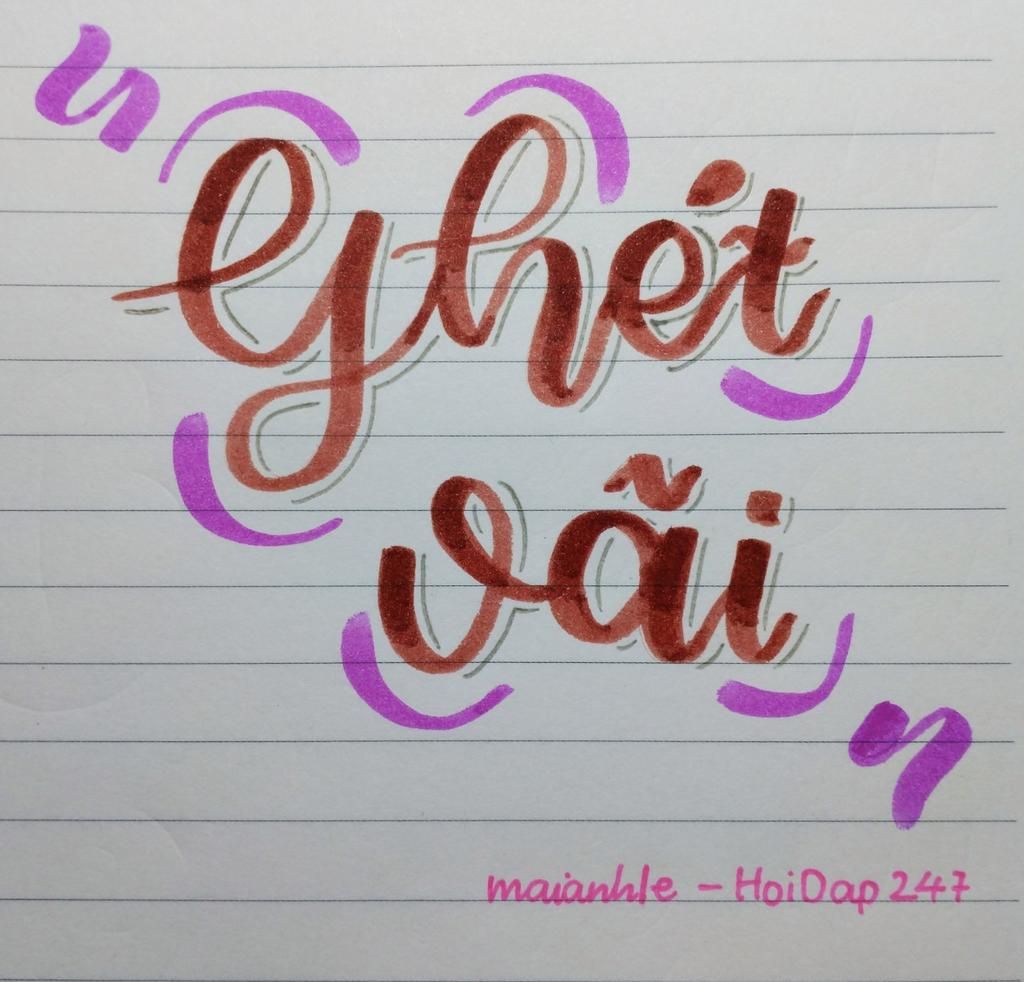 Ghét
vãi
maianhle - HoiDap247